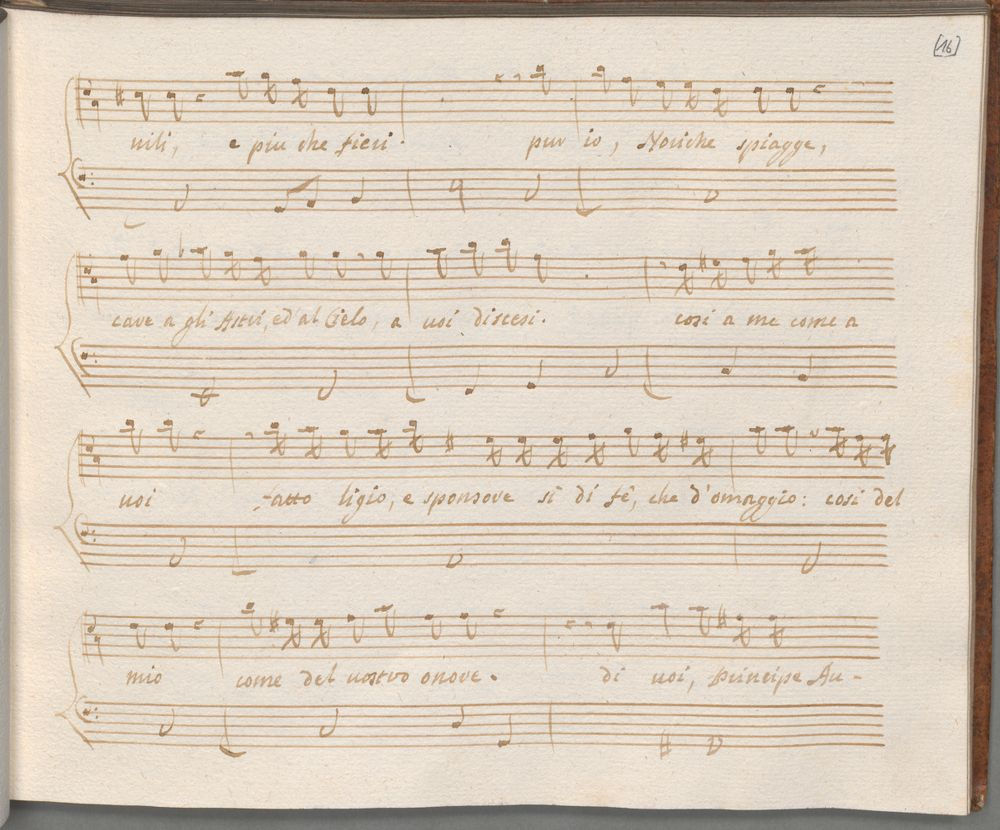 [16]
nili, e piu che fieri. pur io, Noriche spiagge,
care a gli Astri, ed al Cielo, a voi discesi. cosi a me come a
voi fatto ligio, e sponsore sì di fè, che d'omaggio: così del
mio come del vostro onore. di voi, Principe Au-